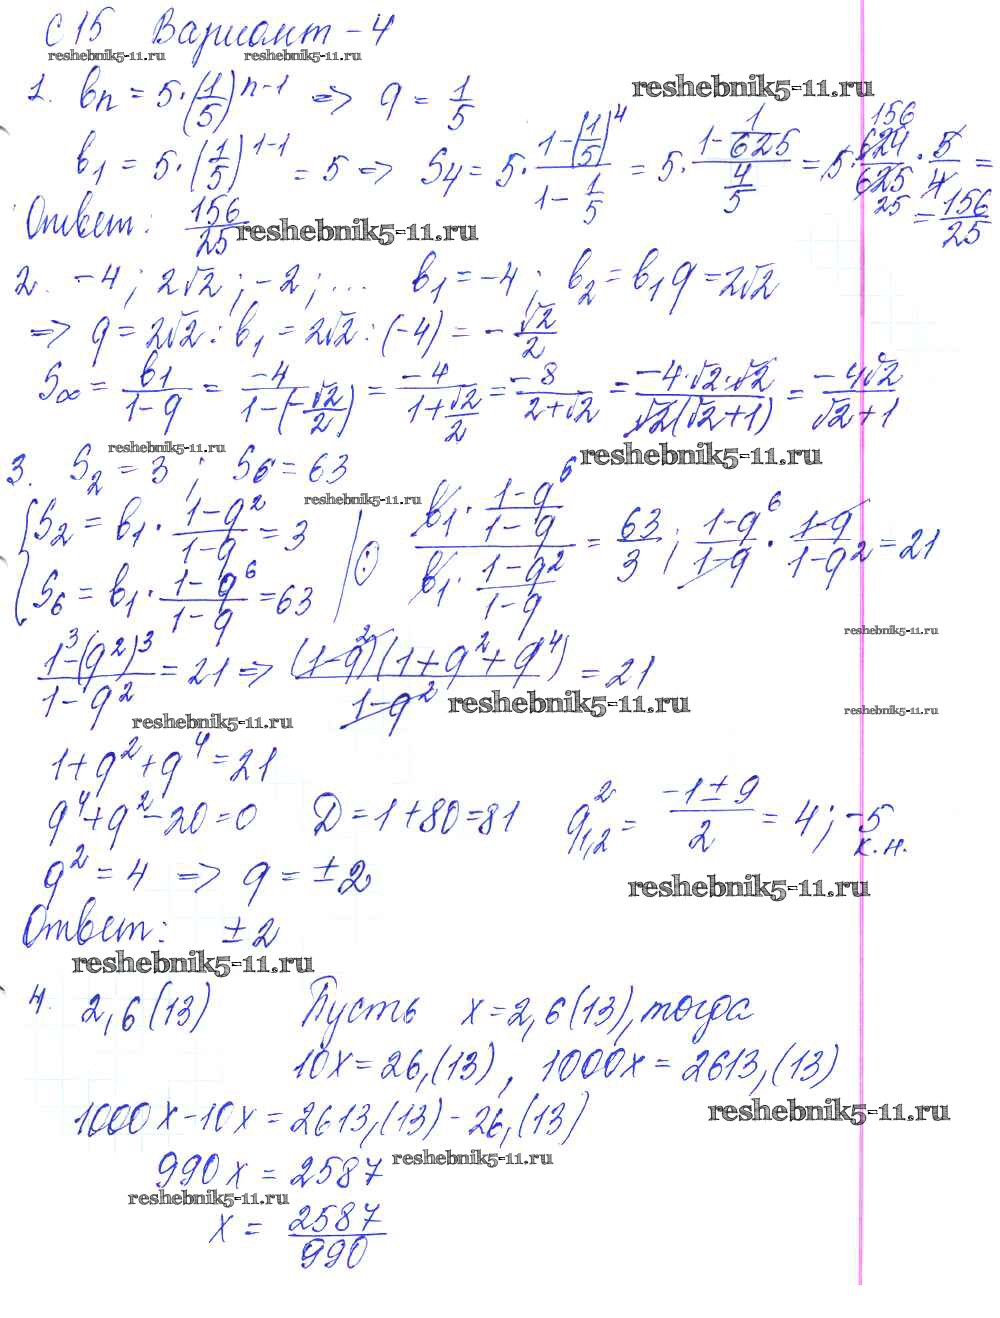 С 15 Вариант - 4
reshebnik5-11.ru reshebnik5-11.ru
1. bn = 5·(1/5)^(n-1) => q = 1/5
reshebnik5-11.ru
b1 = 5·(1/5)^(1-1) = 5 => S4 = 5·(1-(1/5)^4)/(1-1/5) = 5·(1-1/625)/(4/5) = 5·624/625·5/4 =
156
25
= 156/25
Ответ: 156/25
reshebnik5-11.ru
2. -4; 2√2; -2; ... b1 = -4; b2 = b1q = 2√2
=> q = 2√2 : b1 = 2√2 : (-4) = -√2/2
S∞ = b1/(1-q) = -4/(1-(-√2/2)) = -4/(1+√2/2) = -8/(2+√2) = -4·√2·√2/(√2(√2+1)) = -4√2/(√2+1)
reshebnik5-11.ru reshebnik5-11.ru
3. S2 = 3; S6 = 63
reshebnik5-11.ru
{S2 = b1·(1-q^2)/(1-q) = 3
S6 = b1·(1-q^6)/(1-q) = 63 | (:) (b1·(1-q^6)/(1-q))/(b1·(1-q^2)/(1-q)) = 63/3; (1-q^6)/(1-q)·(1-q)/(1-q^2) = 21
reshebnik5-11.ru
(1^3-(q^2)^3)/(1-q^2) = 21 => (1-q^2)(1+q^2+q^4)/(1-q^2) = 21
reshebnik5-11.ru reshebnik5-11.ru reshebnik5-11.ru
1+q^2+q^4 = 21
q^4+q^2-20=0 D = 1+80=81 q^2 1,2 = (-1±9)/2 = 4; -5
к.н.
q^2 = 4 => q = ±2
reshebnik5-11.ru
Ответ: ±2
reshebnik5-11.ru
4. 2,6(13) Пусть x=2,6(13), тогда
10x = 26,(13), 1000x = 2613,(13)
reshebnik5-11.ru
1000x-10x = 2613,(13)-26,(13)
reshebnik5-11.ru
990x = 2587
reshebnik5-11.ru
x = 2587/990